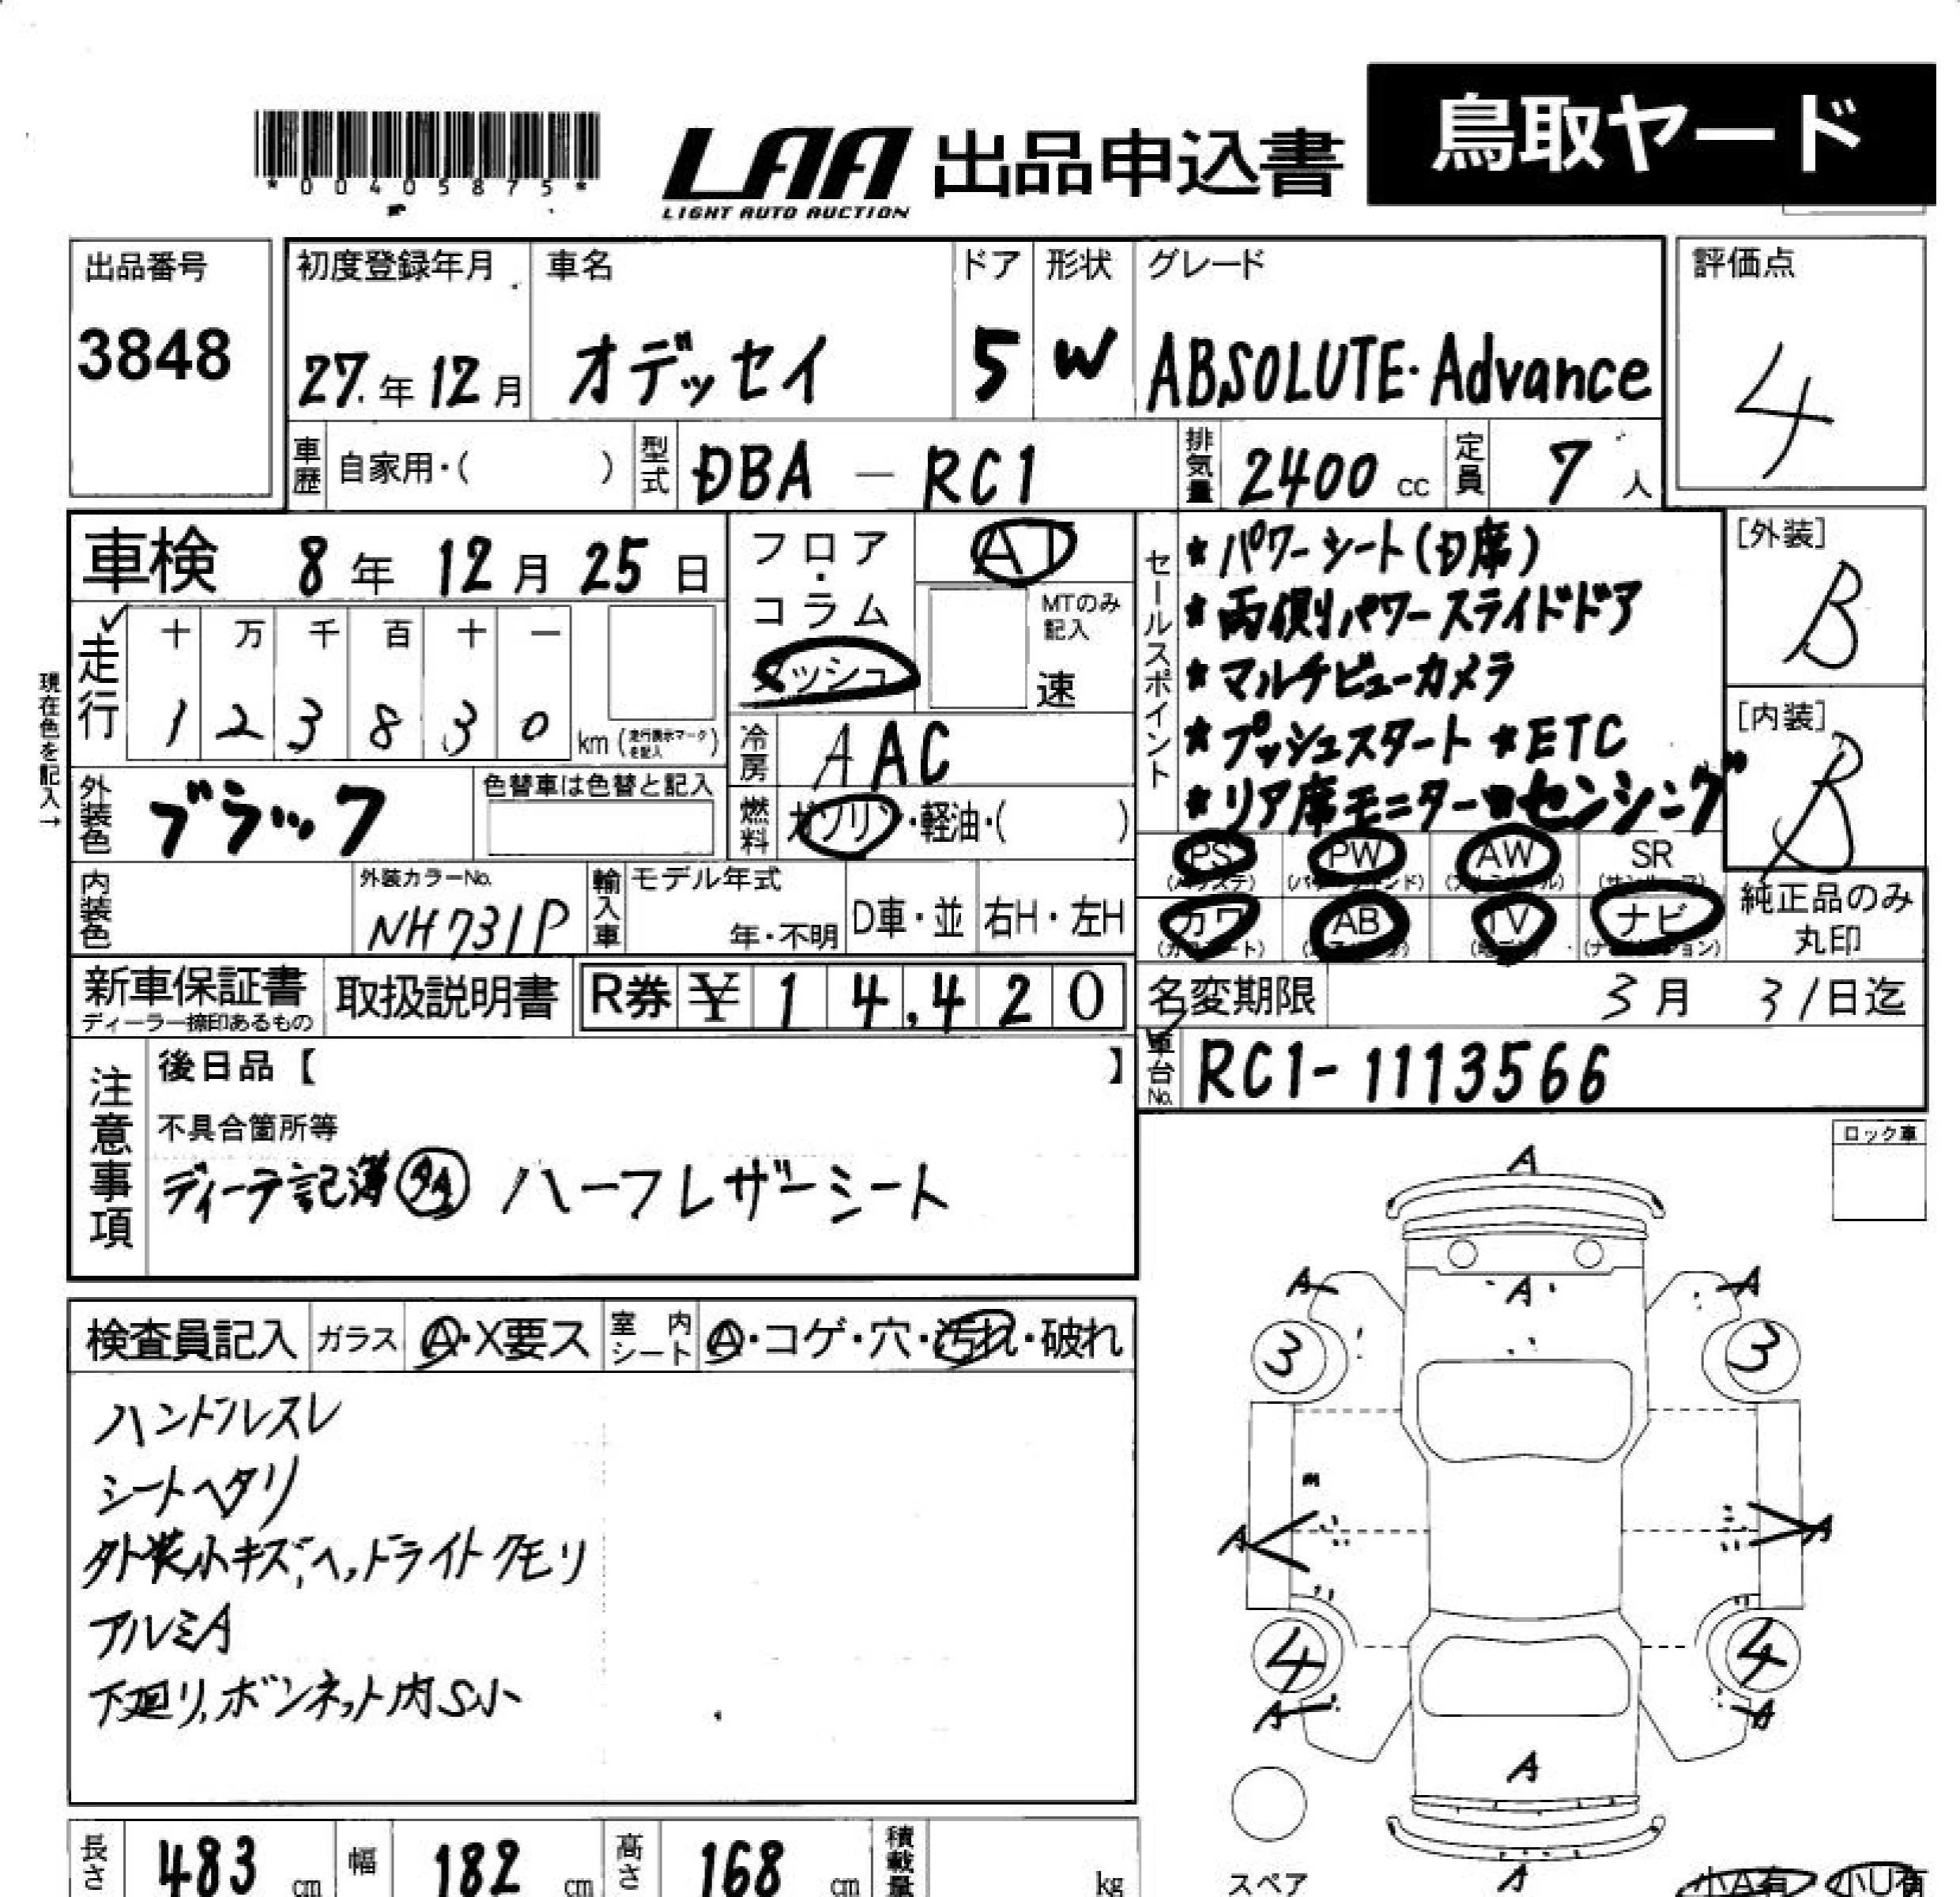 *00405875*
LAA
LIGHT AUTO AUCTION
出品申込書
鳥取ヤード
出品番号
3848
初度登録年月
27.年12月
車名
オデッセイ
ドア
5
形状
W
グレード
ABSOLUTE・Advance
評価点
4
車歴
自家用・( )
型式
DBA － RC1
排気量
2400 cc
定員
7 人
車検 8年 12月 25日
フロア・コラム
ダッシュ
AT
MTのみ記入
速
セールスポイント
*パワーシート(D席)
*両側パワースライドドア
*マルチビューカメラ
*プッシュスタート *ETC
*リア席モニター センシング
[外装]
B
[内装]
B
現在色を記入→
走行
十 万 千 百 十 一
1 2 3 8 3 0 km (走行表示マークを記入)
冷房
AAC
外装色
ブラック
色替車は色替と記入
燃料
ガソリン・軽油・( )
PS PW AW SR
カワ AB TV ナビ
純正品のみ
丸印
内装色
外装カラーNo.
NH731P
輸入車
モデル年式
年・不明
D車・並
右H・左H
新車保証書
ディーラー捺印あるもの
取扱説明書
R券 ¥ 14,420
名変期限 3月 31日迄
車台No.
RC1-1113566
注意事項
後日品【 】
不具合箇所等
ディーラ記簿 ハーフレザーシート
ロック車
検査員記入
ガラス
A・X要ス
室内シート
A・コゲ・穴・汚れ・破れ
ハンドルスレ
シートヘタリ
外装小キズ、ヘッドライトクモリ
アルミA
下廻り、ボンネット内S小
A
A A A
3 3
m
A A
4 4
A A
A
A
スペア
小A有 小U有
長さ 483 cm
幅 182 cm
高さ 168 cm
積載量 kg